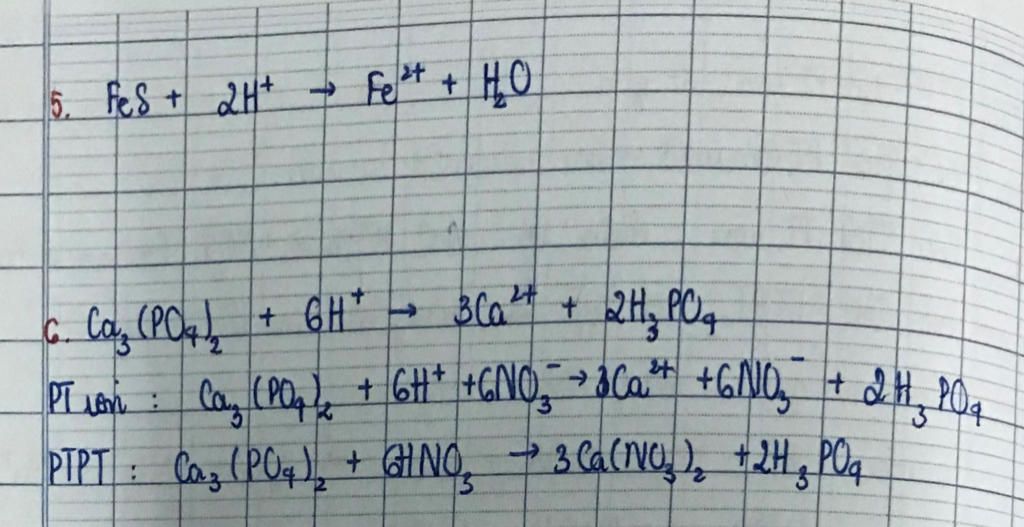 5. FeS + 2H⁺ → Fe²⁺ + H₂O
6. Ca₃(PO₄)₂ + 6H⁺ → 3Ca²⁺ + 2H₃PO₄
PT ion : Ca₃(PO₄)₂ + 6H⁺ + 6NO₃⁻ → 3Ca²⁺ + 6NO₃⁻ + 2H₃PO₄
PTPT : Ca₃(PO₄)₂ + 6HNO₃ → 3Ca(NO₃)₂ + 2H₃PO₄